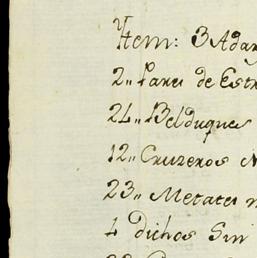 Ytem: 3 Adar
2,, Pares de Estr
24,, Belduques
12,, Cruzeros N
23,, Metates
4 dichos Sin